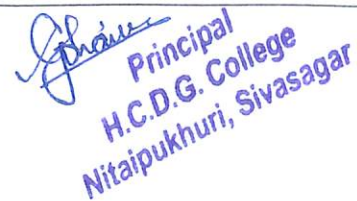 Principal
H.C.D.G. College
Nitaipukhuri, Sivasagar